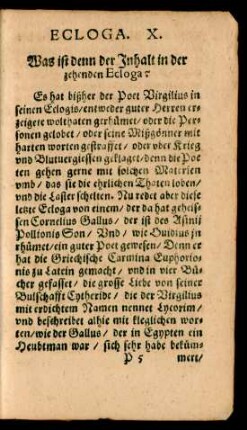 ECLOGA. X.
Was ist denn der Inhalt in der
zehenden Ecloga?
Es hat bißher der Poet Virgilius in
seinen Eclogis/entweder guter Herren er-
zeigete wolthaten gerhümet/oder die Per-
sonen gelobet/oder seine Mißgönner mit
harten worten gestraffet/oder vber Krieg
vnd Blutuergiessen geklaget/denn die Poe-
ten gehen gerne mit solchen Materien
vmb/das sie die ehrlichen Thaten loben/
vnd die Laster schelten. Nu redet aber diese
letzte Ecloga von einem/der da hat geheis-
sen Cornelius Gallus/der ist des Asinij
Pollionis Son/Vnd/wie Ouidius jn
rhümet/ein guter Poet gewesen/Denn er
hat die Griechische Carmina Euphorio-
nis zu Latein gemacht/vnd in vier Bü-
cher gefasset/die grosse Liebe von seiner
Bulschafft Cytheride/die der Virgilius
mit erdichtem Namen nennet Lycorim/
vnd beschreibet alhie mit kleglichen wor-
ten/wie der Gallus/der in Egypten ein
Heubtman war/sich sehr habe bekům-
P 5 mert/